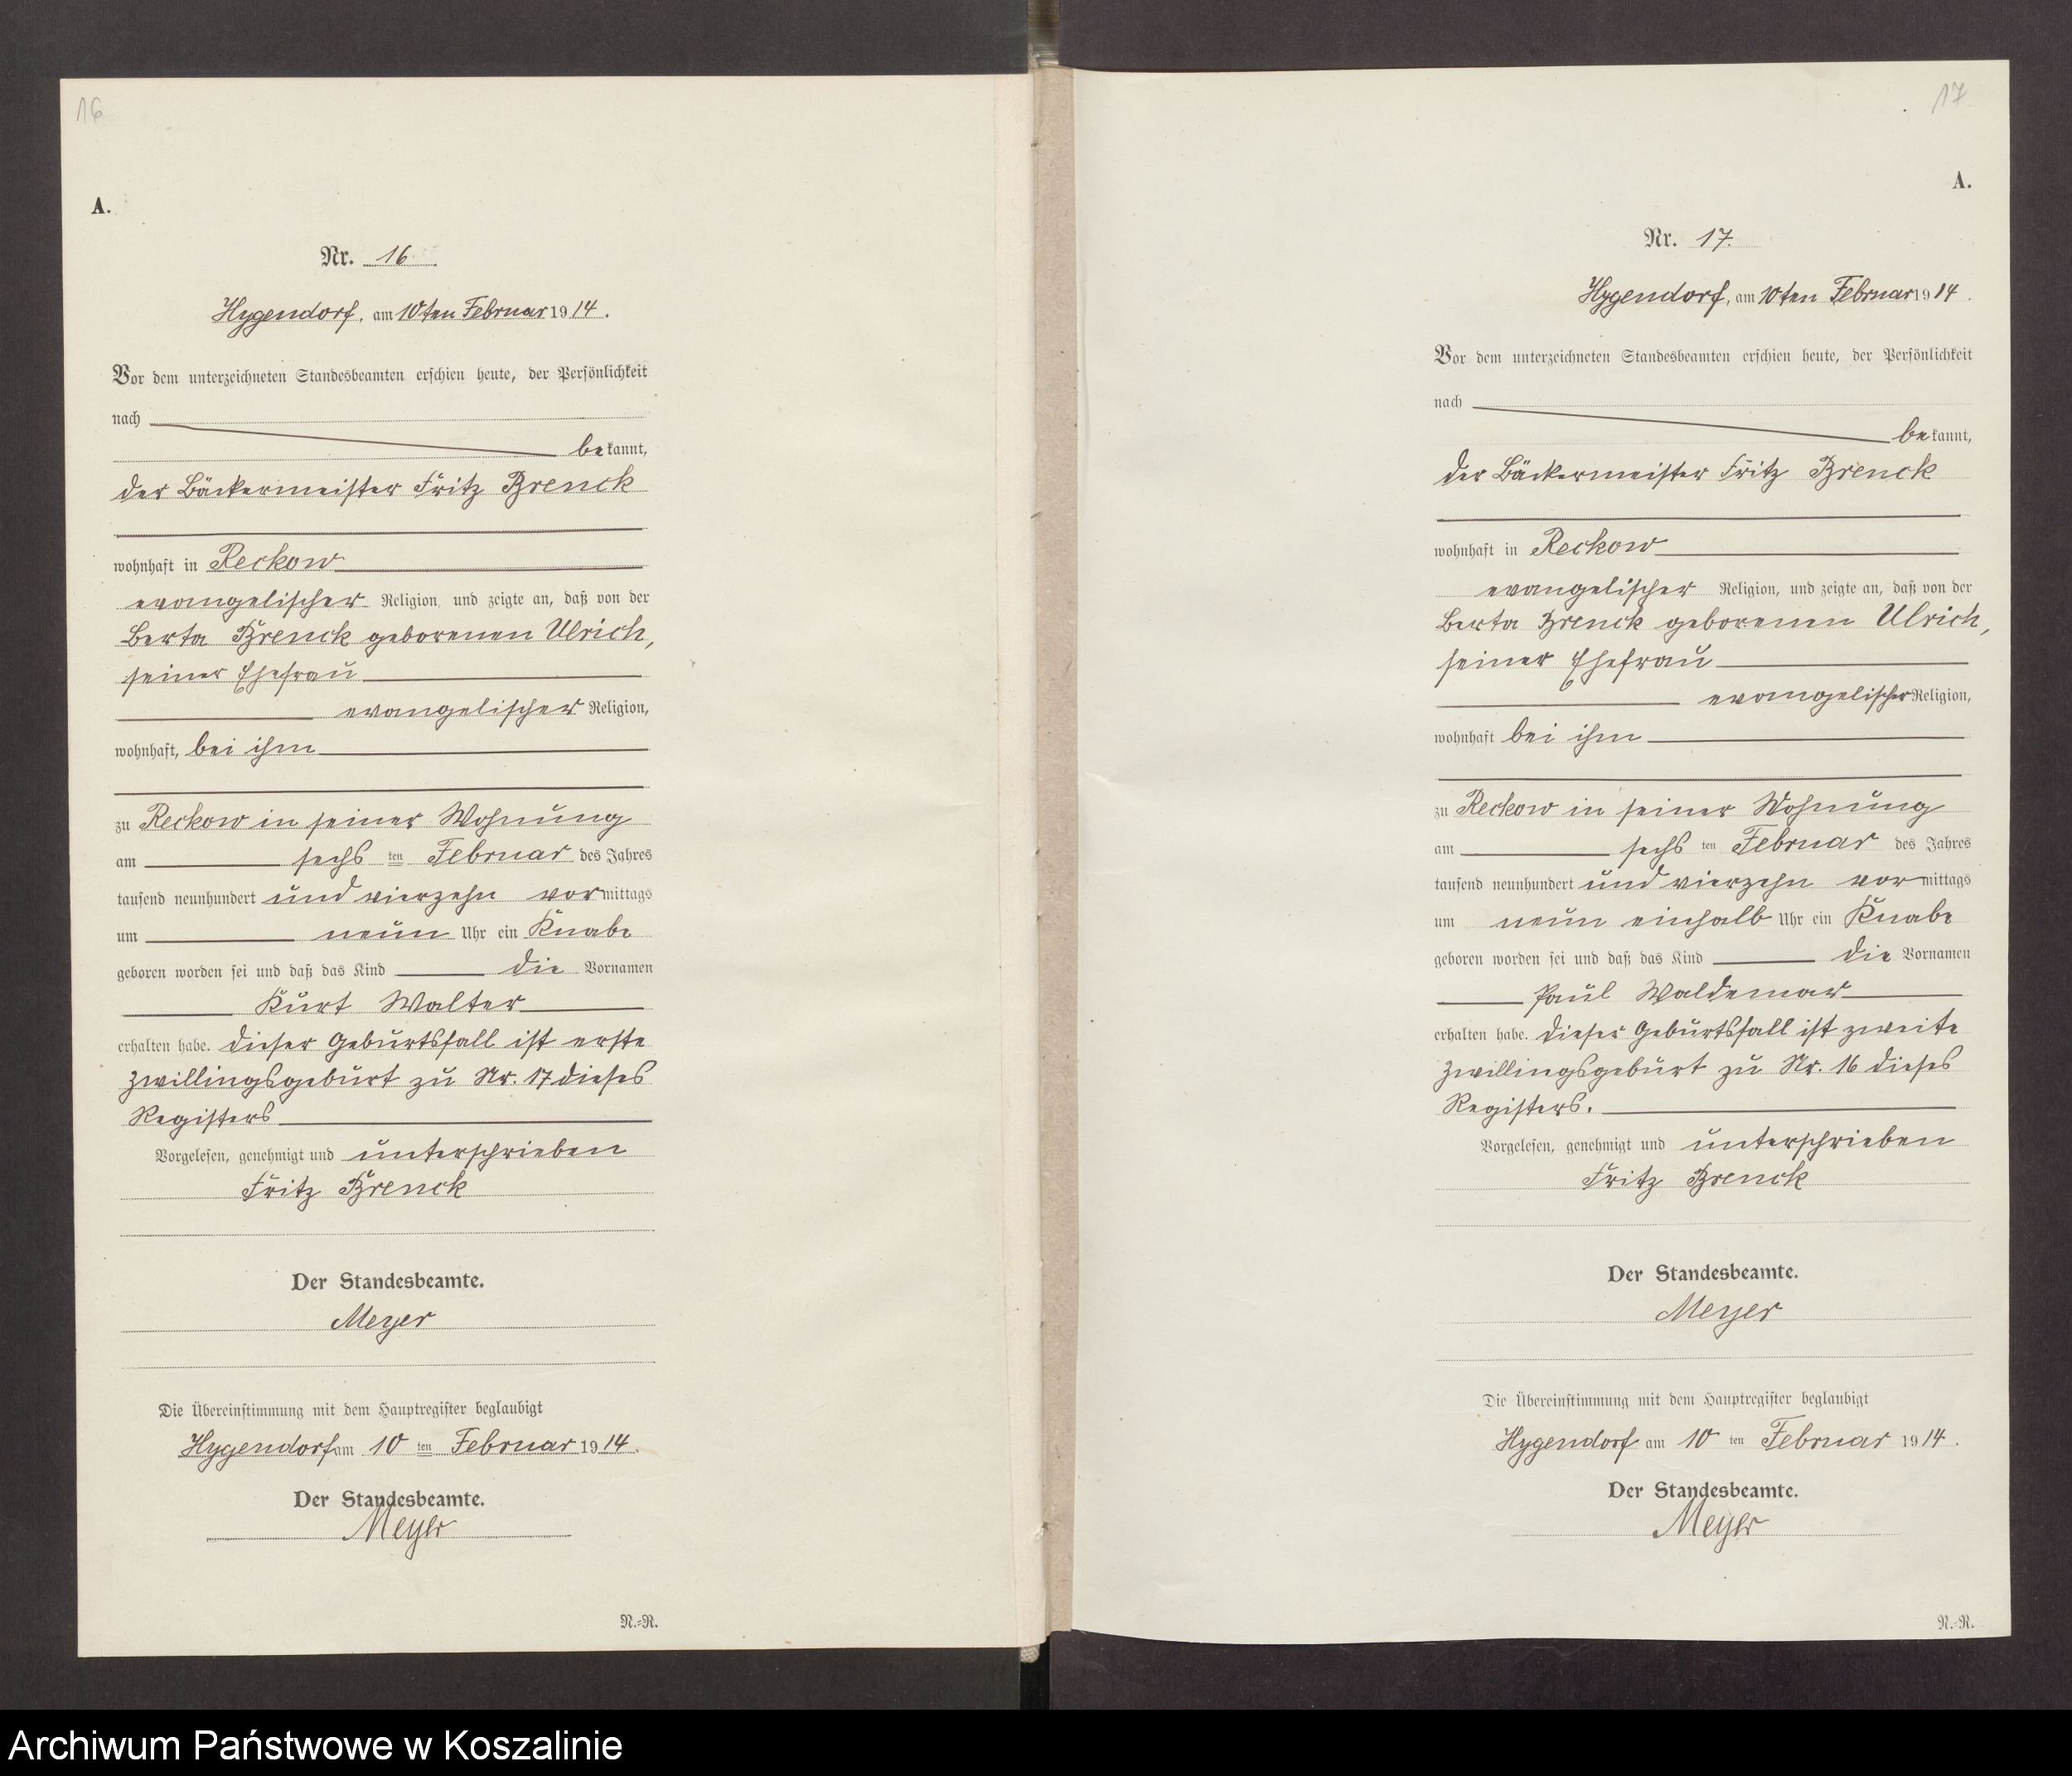 16
A.
Nr. 16.
Hygendorf, am 10ten Februar 1914.
Vor dem unterzeichneten Standesbeamten erschien heute, der Persönlichkeit
nach
bekannt,
der Bäckermeister Fritz Brenck
wohnhaft in Reckow
evangelischer Religion, und zeigte an, daß von der
Berta Brenck geborenen Ulrich,
seiner Ehefrau
evangelischer Religion,
wohnhaft, bei ihm
zu Reckow in seiner Wohnung
am sechs ten Februar des Jahres
tausend neunhundert und vierzehn vormittags
um neun Uhr ein Knabe
geboren worden sei und daß das Kind die Vornamen
Kurt Walter
erhalten habe. Dieser Geburtsfall ist erste
Zwillingsgeburt zu Nr. 17 dieses
Registers
Vorgelesen, genehmigt und unterschrieben
Fritz Brenck
Der Standesbeamte.
Meyer
Die Übereinstimmung mit dem Hauptregister beglaubigt
Hygendorf am 10 ten Februar 1914.
Der Standesbeamte.
Meyer
N.-R.
17
A.
Nr. 17.
Hygendorf, am 10ten Februar 1914.
Vor dem unterzeichneten Standesbeamten erschien heute, der Persönlichkeit
nach
bekannt,
der Bäckermeister Fritz Brenck
wohnhaft in Reckow
evangelischer Religion, und zeigte an, daß von der
Berta Brenck geborenen Ulrich,
seiner Ehefrau
evangelischer Religion,
wohnhaft bei ihm
zu Reckow in seiner Wohnung
am sechs ten Februar des Jahres
tausend neunhundert und vierzehn vormittags
um neun einhalb Uhr ein Knabe
geboren worden sei und daß das Kind die Vornamen
Paul Waldemar
erhalten habe. Dieser Geburtsfall ist zweite
Zwillingsgeburt zu Nr. 16 dieses
Registers.
Vorgelesen, genehmigt und unterschrieben
Fritz Brenck
Der Standesbeamte.
Meyer
Die Übereinstimmung mit dem Hauptregister beglaubigt
Hygendorf am 10 ten Februar 1914.
Der Standesbeamte.
Meyer
N.-R.
Archiwum Państwowe w Koszalinie